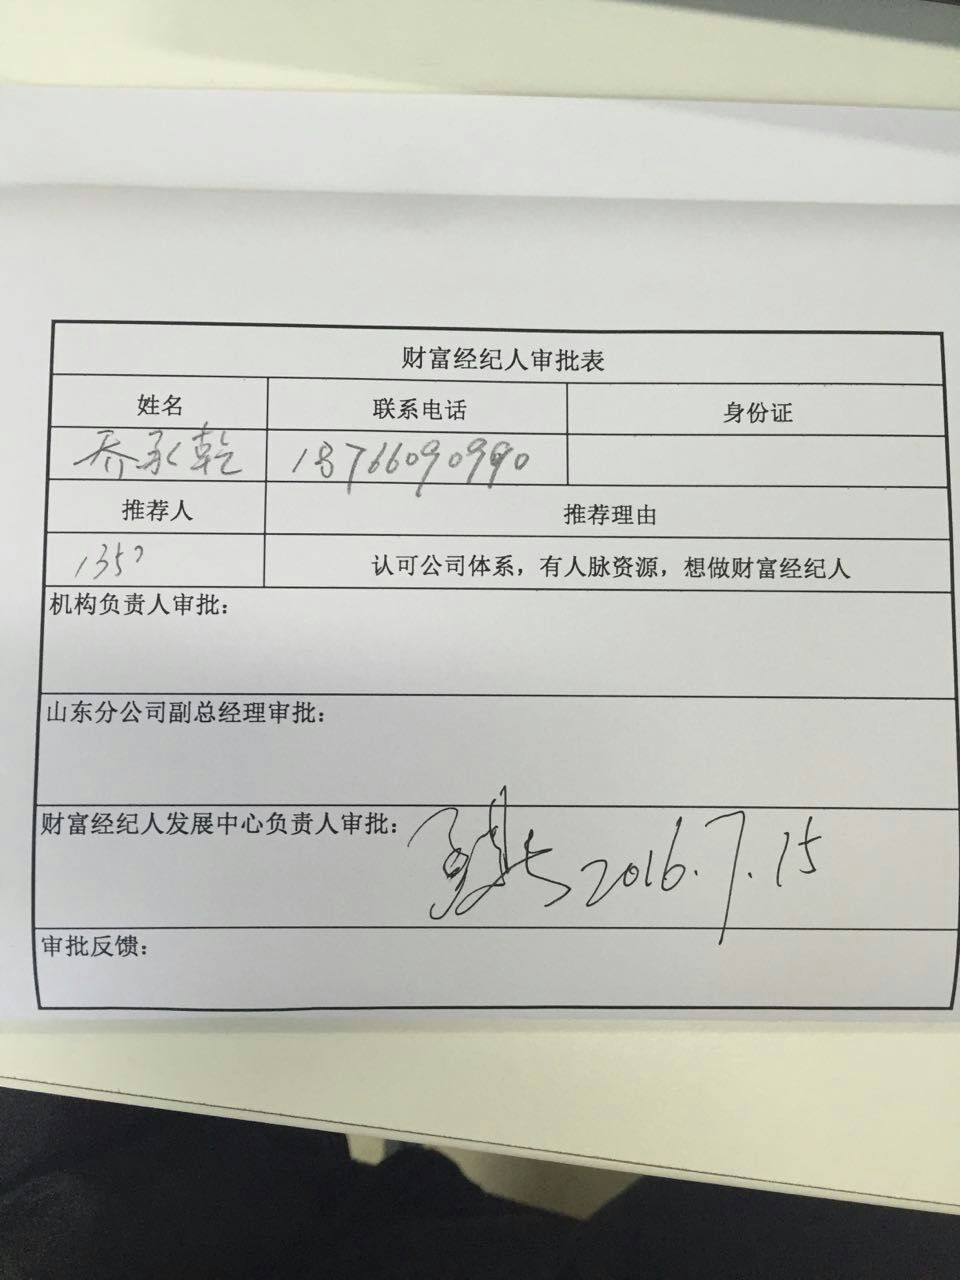 财富经纪人审批表
姓名 联系电话 身份证
乔承乾 18766090990
推荐人 推荐理由
135 认可公司体系，有人脉资源，想做财富经纪人
机构负责人审批：
山东分公司副总经理审批：
财富经纪人发展中心负责人审批： 2016.7.15
审批反馈：